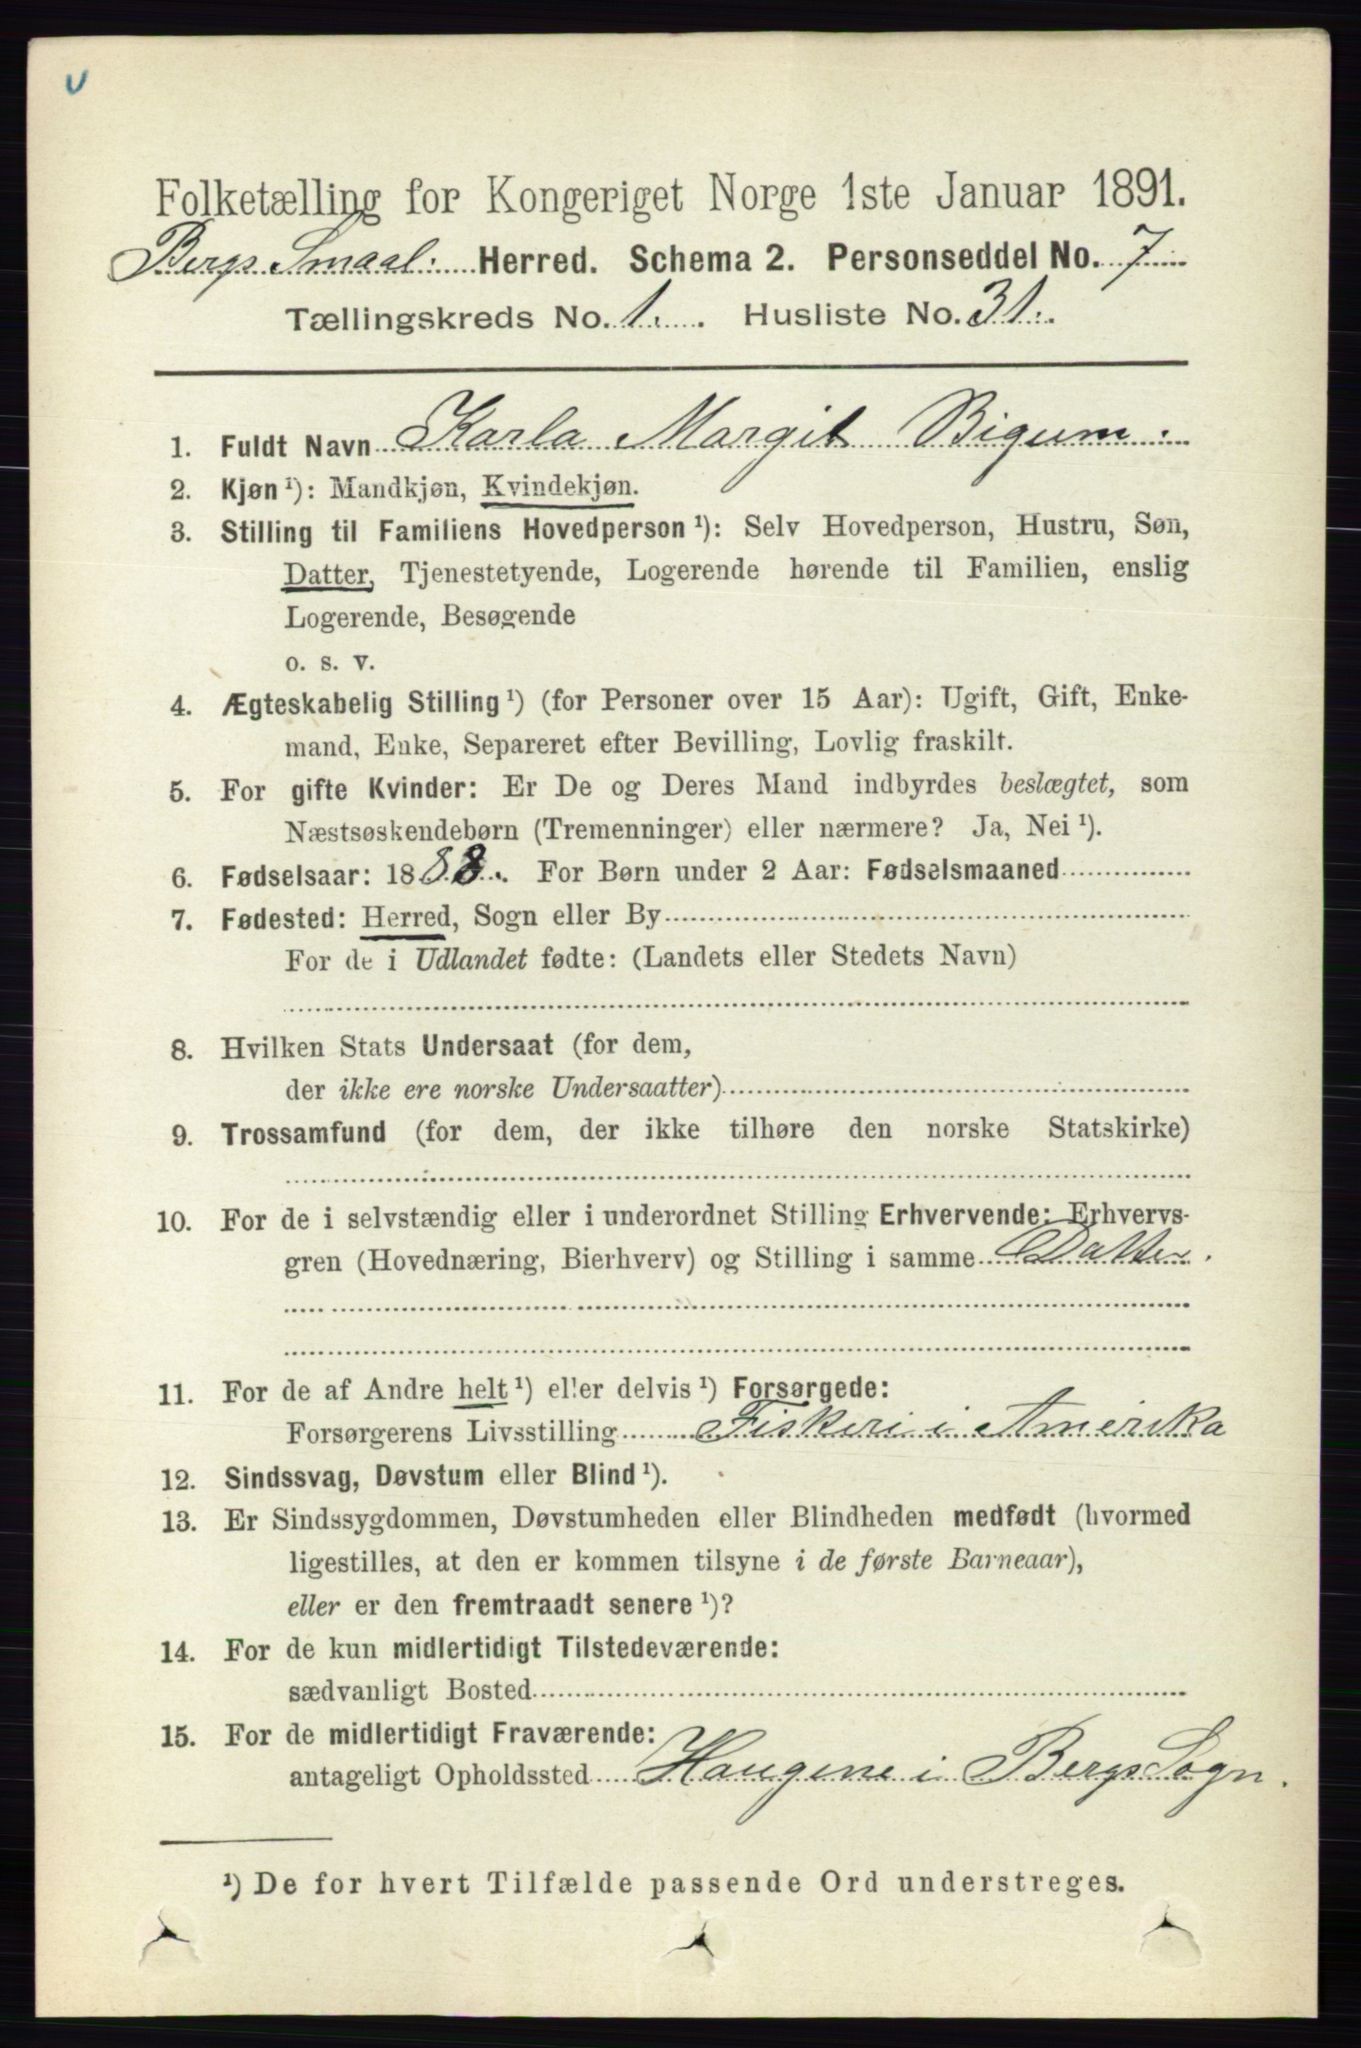 Folketælling for Kongeriget Norge 1ste Januar 1891.
Bergs Smaal. Herred. Schema 2. Personseddel No. 7
Tællingskreds No. 1. Husliste No. 31.
1. Fuldt Navn Karla Margit Bigum.
2. Kjøn ¹): Mandkjøn, Kvindekjøn.
3. Stilling til Familiens Hovedperson ¹): Selv Hovedperson, Hustru, Søn,
Datter, Tjenestetyende, Logerende hørende til Familien, enslig
Logerende, Besøgende
o. s. v.
4. Ægteskabelig Stilling ¹) (for Personer over 15 Aar): Ugift, Gift, Enke-
mand, Enke, Separeret efter Bevilling, Lovlig fraskilt.
5. For gifte Kvinder: Er De og Deres Mand indbyrdes beslægtet, som
Næstsøskendebørn (Tremenninger) eller nærmere? Ja, Nei ¹).
6. Fødselsaar: 1888. For Børn under 2 Aar: Fødselsmaaned
7. Fødested: Herred, Sogn eller By
For de i Udlandet fødte: (Landets eller Stedets Navn)
8. Hvilken Stats Undersaat (for dem,
der ikke ere norske Undersaatter)
9. Trossamfund (for dem, der ikke tilhøre den norske Statskirke)
10. For de i selvstændig eller i underordnet Stilling Erhvervende: Erhvervs-
gren (Hovednæring, Bierhverv) og Stilling i samme Datter.
11. For de af Andre helt ¹) eller delvis ¹) Forsørgede:
Forsørgerens Livsstilling Fiskeri i Amerika
12. Sindssvag, Døvstum eller Blind ¹).
13. Er Sindssygdommen, Døvstumheden eller Blindheden medfødt (hvormed
ligestilles, at den er kommen tilsyne i de første Barneaar),
eller er den fremtraadt senere ¹)?
14. For de kun midlertidigt Tilstedeværende:
sædvanligt Bosted
15. For de midlertidigt Fraværende:
antageligt Opholdssted Haugene i Bergs Sogn.
¹) De for hvert Tilfælde passende Ord understreges.